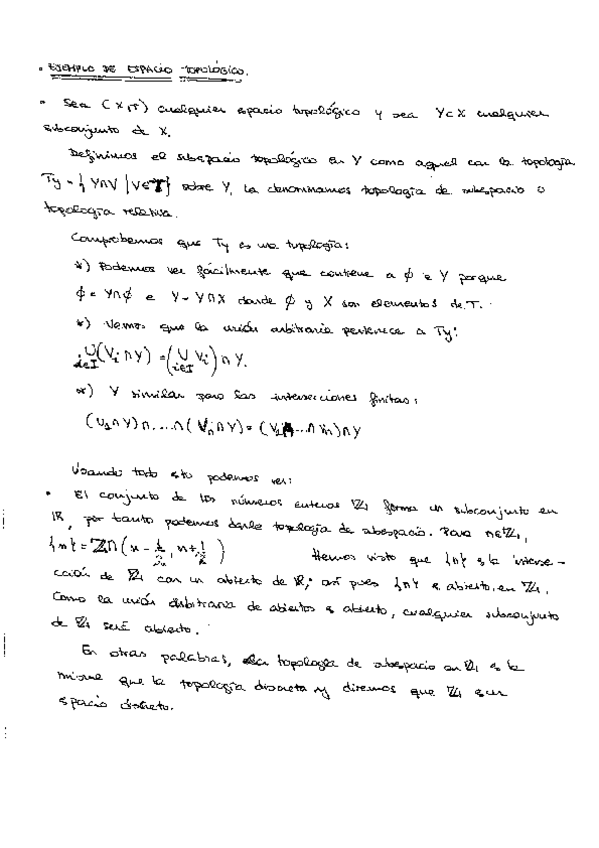 • EJEMPLO DE ESPACIO TOPOLÓGICO.
• Sea (X,T) cualquier espacio topológico y sea Y⊂X cualquier
subconjunto de X.
Definimos el subespacio topológico en Y como aquel con la topología
Ty = { Y∩V | V∈T} sobre Y, la denominamos topología de subespacio o
topología relativa.
Comprobemos que Ty es una topología:
*) Podemos ver fácilmente que contiene a ∅ e Y porque
∅ = Y∩∅ e Y = Y∩X donde ∅ y X son elementos de T.
*) Vemos que la unión arbitraria pertenece a Ty:
∪i∈I (Vi ∩ Y) = (∪i∈I Vi) ∩ Y.
*) Y similar para las intersecciones finitas:
(V1∩Y)∩....∩(Vn∩Y) = (V1∩...∩Vn)∩Y
Usando todo esto podemos ver:
• El conjunto de los números enteros ℤ, forma un subconjunto en
ℝ, por tanto podemos darle topología de subespacio. Para n∈ℤ,
{n} = ℤ∩(n - 1/2, n + 1/2) Hemos visto que {n} es la interse-
cción de ℤ con un abierto de ℝ, así pues {n} es abierto, en ℤ,
Como la unión arbitraria de abiertos es abierto, cualquier subconjunto
de ℤ será abierto.
En otras palabras, la topología de subespacio en ℤ es la
misma que la topología discreta y diremos que ℤ es un
espacio discreto.